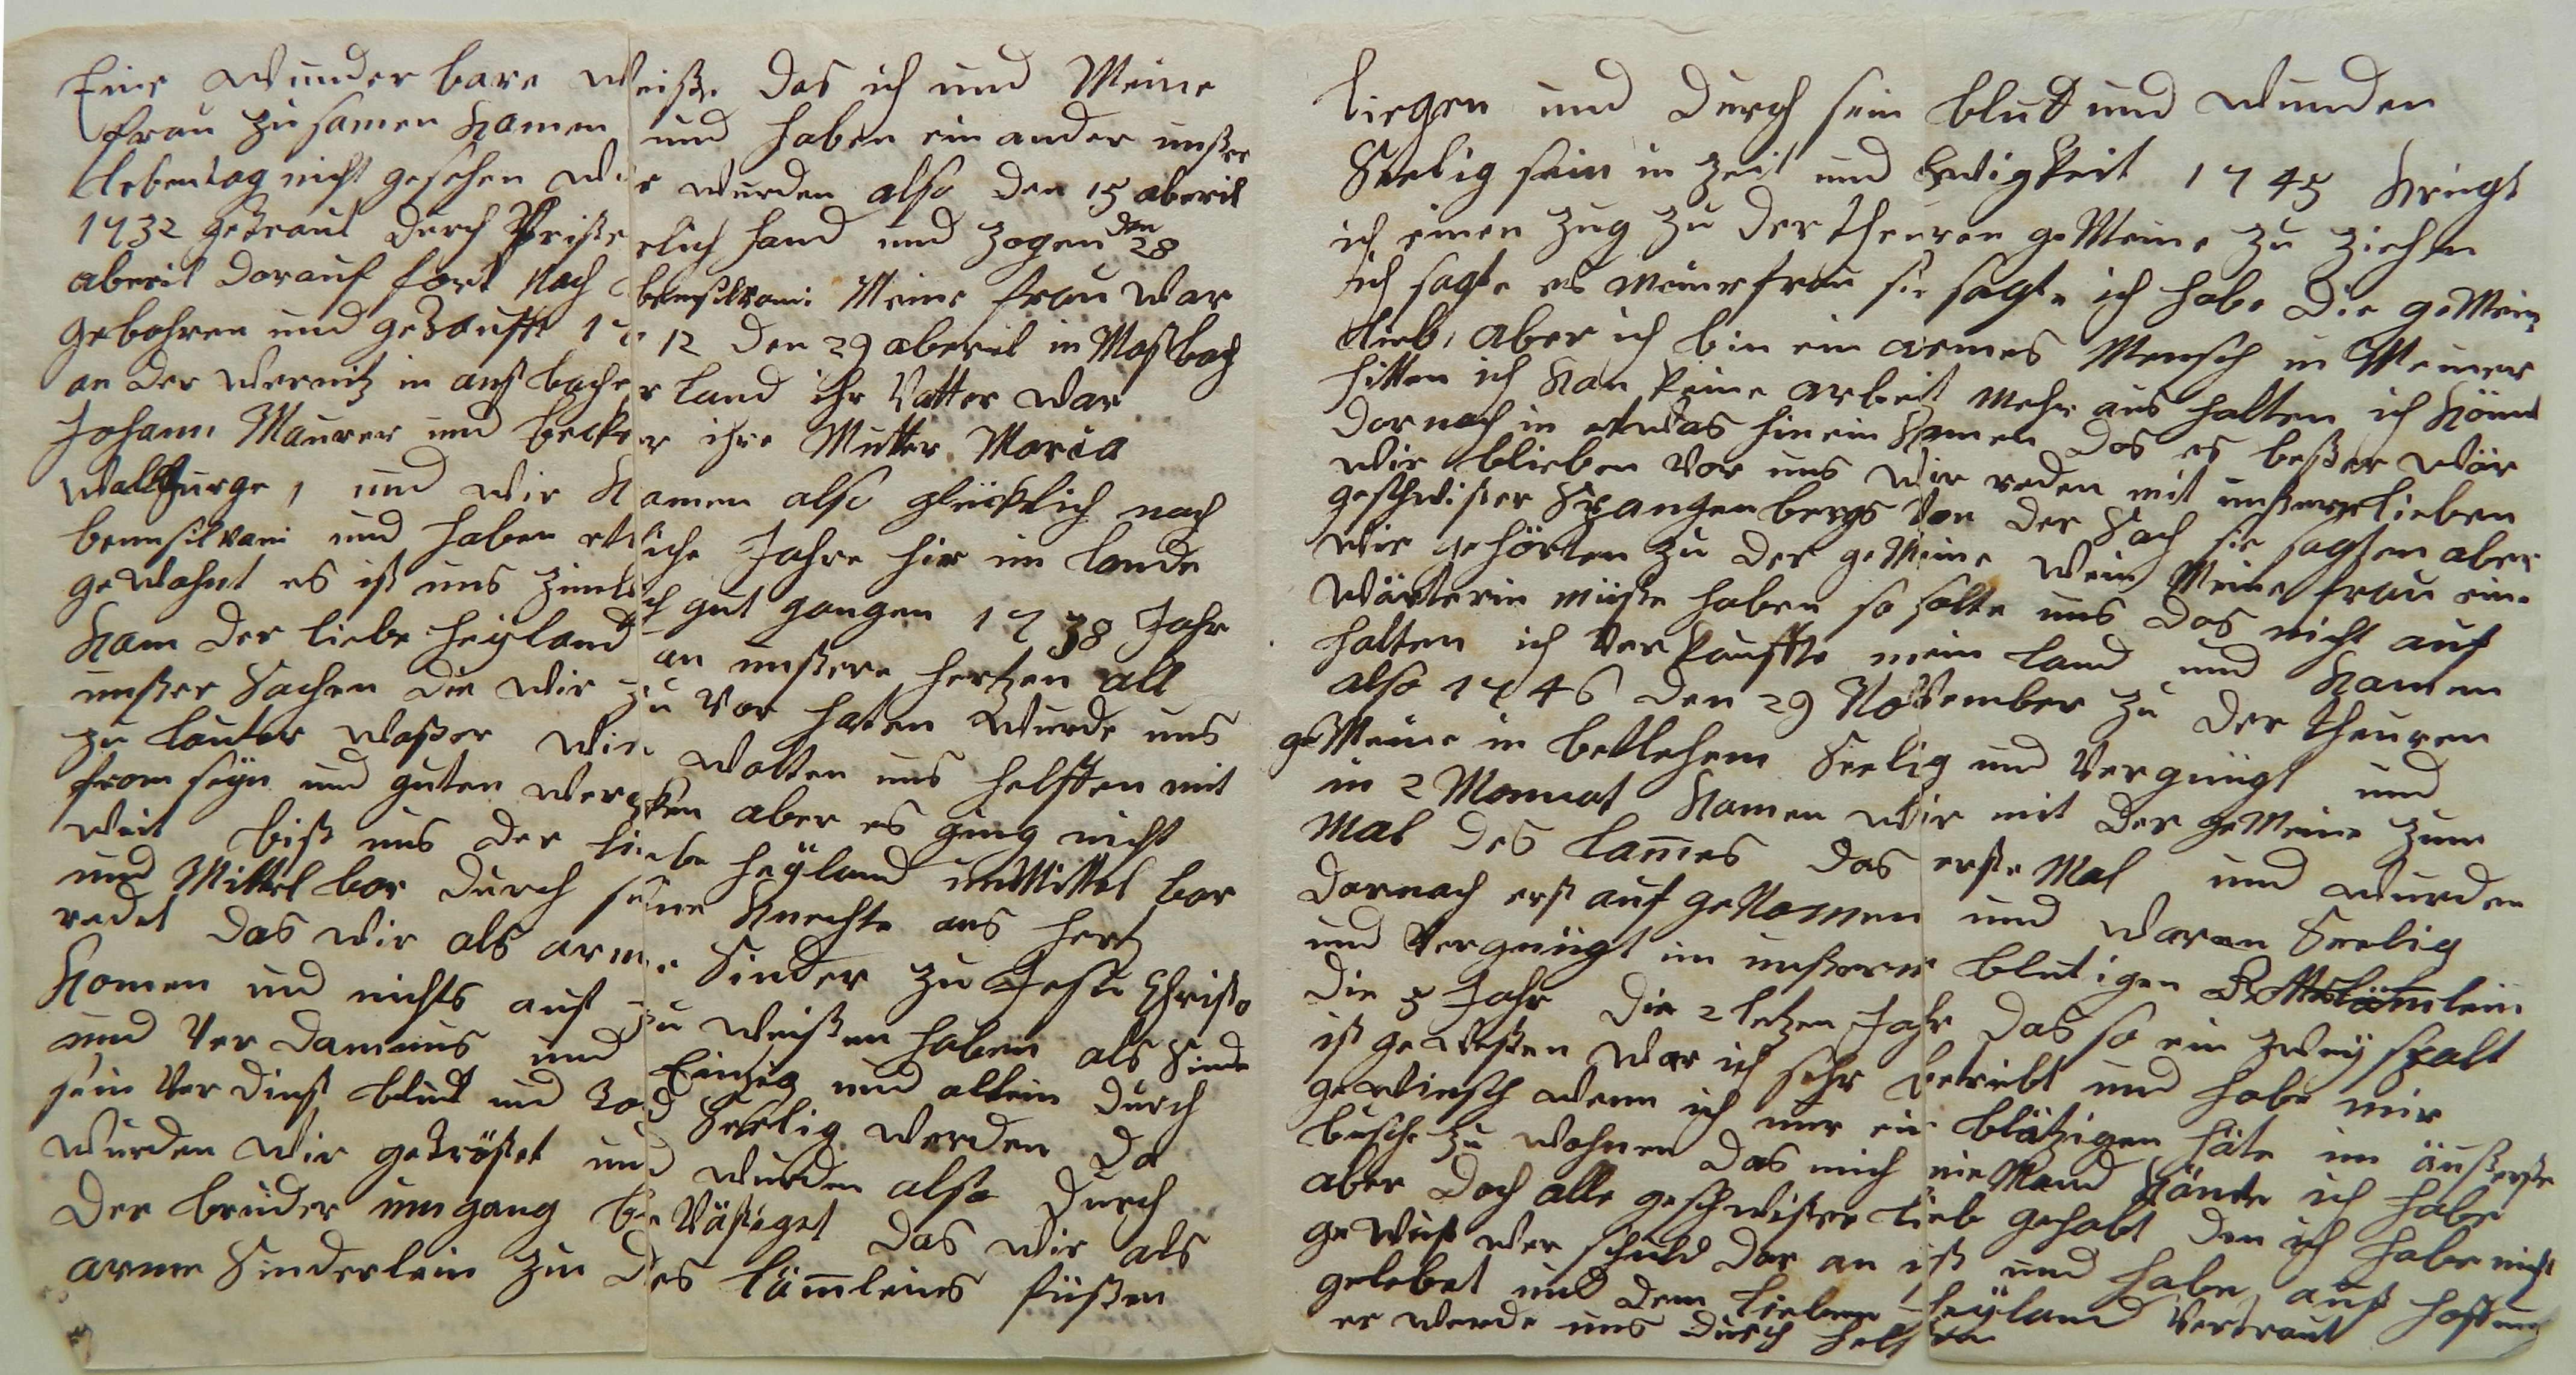 Eine wunder bare weiße das ich und Meine
frau zu samen kamen und haben ein ander unßer
lebentag nicht gesehen wir wurden also den 15 aberil
1732 getraut durch Pristerlich hand und zogen den 28
aberil darauf fort nach bensilvani Meine frau war
gebohren und getaufft 1712 den 29 aberil in Moßbach
an der wernitz in ansbacher land ihr Vatter war
Johann Maurer und becker ihre Mutter Maria
wallburge, und wir kamen also glücklich nach
bennsilvani und haben etliche Jahre hir im lande
gewohnt es ist uns zimlich gut gangen 1738 Jahr
kam der liebe heyland an unßere hertzen all
unßer sachen die wir zu vor haten wurde uns
zu lauter waßer wir wolten uns helfften mit
from seyn und guten wercken aber es ging nicht
weit biß uns der liebe heyland unMittel bar
und Mittel bar durch seine knechte ans hertz
redet das wir als arme Sinder zu Jesu Christo
komen und nichts auf zu weißen haben als Sinde
und Ver damnus und Einzig und allein durch
sein Ver dinst blut und Tod Seelig werden da
wurden wir getröstet und wurden also durch
der brüder umgang be Västiget das wir als
arme Sinderlein zu des läm̅leins füßen
liegen und durch sein blutt und wunden
Seelig sein in zeit und Ewigkeit 1745 kriegt
ich einen zug zu der theuren geMeine zu ziehen
ich sagte es meiner frau sie sagte ich habe die geMein
lieb, aber ich bin ein armes Mensch in Meiner
hitten ich kan keine arbeit mehr aus halten ich könnt
darnach in etwas hinein komen das es beßer wär
wir blieben vor uns wir reden mit unßern lieben
geschwister Spangenbergs von der sach sie sagten aber
wir gehörten zu der geMeine wen Meine frau eine
wärterin müste haben so solte uns das nicht auf
halten ich Verkauffte mein land und kamen
also 1745 den 29 November zu der theuren
geMeine in betlehem Seelig und Vergnügt und
in 2 Monnat kamen wir mit der geMeine zum
Mal des lam̅es das erste Mal und wurden
darnach erst auf genomen und waren Seelig
und Vergnügt in unßerm blutigen Gotteslämlein
die 5 Jahr die 2 letzen Jahr das so ein zweyspalt
ist geweßen war ich sehr betriebt und habe mir
gewinsch wenn ich nur ein blätzigen häte im äußerste
busche zu wohnen das mich nieMand könte ich habe
aber doch alle geschwister lieb gehabt den ich habe nicht
gewust wer schuld dar an ist und habe auf hoffnung
gelebet und dem lieben heyland Vertraut
er werde uns durch helfen